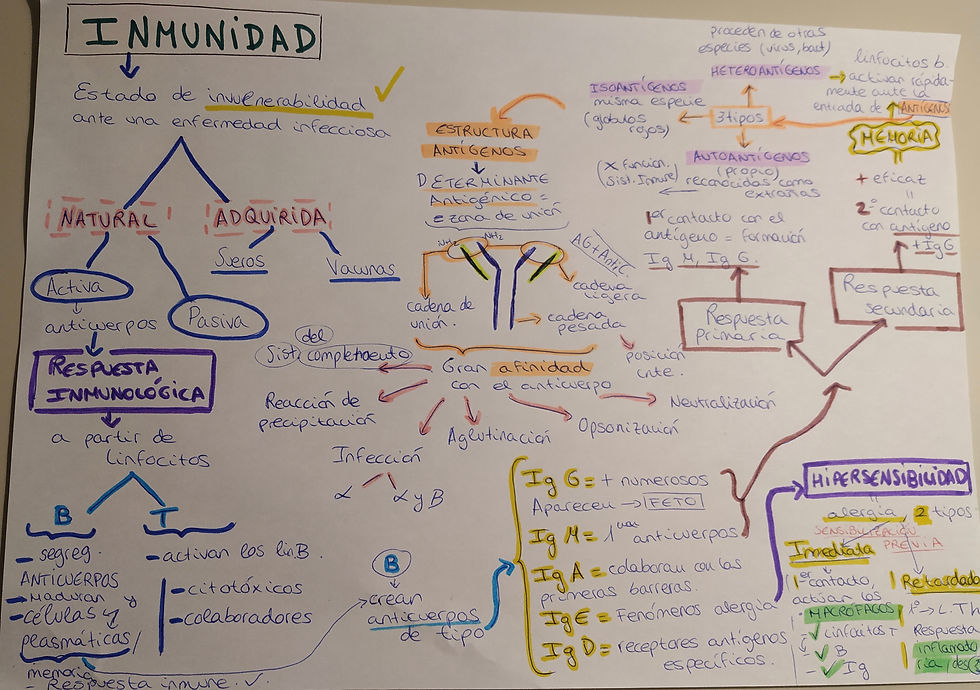 INMUNIDAD
Estado de invulnerabilidad
ante una enfermedad infecciosa
NATURAL
ADQUIRIDA
Sueros
Vacunas
Activa
Pasiva
anticuerpos
RESPUESTA
INMUNOLÓGICA
a partir de
linfocitos
B
T
- segreg.
ANTICUERPOS
→ maduran
- células
plasmáticas/
memoria
- Respuesta inmune.
- activan los linB.
- citotóxicos
- colaboradores
B
crean
anticuerpos
de tipo
ESTRUCTURA
ANTÍGENOS
DETERMINANTE
Antigénico =
= zona de unión
NH2
NH2
AG + AntiC.
cadena
ligera
cadena de
unión.
cadena
pesada
posición
cnte.
Gran afinidad
con el anticuerpo
del
Sist. complemento
Reacción de
precipitación
Infección
α
α y B
Aglutinación
Opsonización
Neutralización
proceden de otras
especies (virus, bact)
HETEROANTÍGENOS
ISOANTÍGENOS
misma especie
(glóbulos
rojos)
3 tipos
AUTOANTÍGENOS
(propio)
reconocidas como
extrañas
(X función.
Sist. Inmune)
linfocitos b.
→ activar rápida-
mente ante la
entrada de ANTÍGENOS
MEMORIA
+ eficaz
=
2º contacto
con antígeno
+ IgG
1er contacto con el
antígeno = formación
Ig M, Ig G.
Respuesta
primaria
Respuesta
secundaria
Ig G = + numerosos
Aparecen → FETO
Ig M = 1 anticuerpos
Ig A = colaboran con las
primeras barreras.
Ig E = Fenómenos alergia
Ig D = receptores antígenos
específicos.
HIPERSENSIBILIDAD
=
alergia, 2 tipos
SENSIBILIZACIÓN
PREVIA
Inmediata
1er contacto,
activan los
MACRÓFAGOS
linfocitos T
B
Ig
Retardada
1º → L.T
Respuesta
inflamato
ria